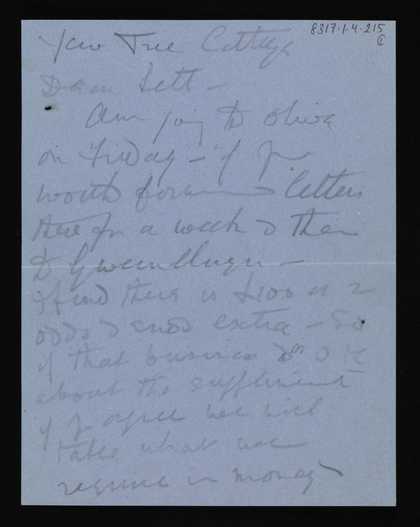 8317.1.4.215
Yew Tree Cottage
Dear Sett –
Am going to Olive
on Friday – if you
would forward letters
there for a week & then
to
I find there is £100 or 2
odds & ends extra – So
if that business is O K
about the supplement
if you agree we will
take what we
require in money